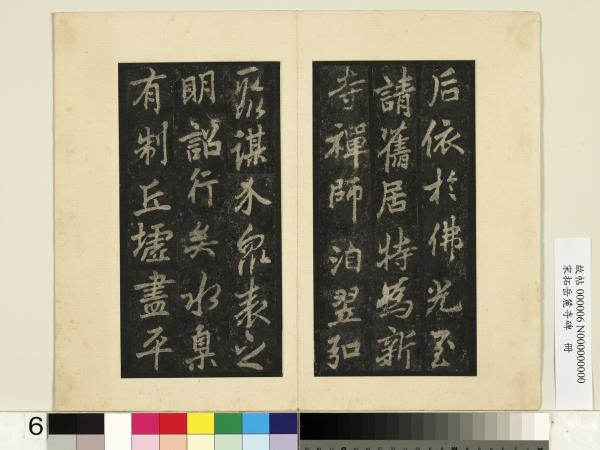 后依於佛光至
請舊居特為新
寺禪師洎翌弘
聚謀介眾表之
明詔行矣水臬
有制丘墟盡平
故帖 000006 N000000000
宋拓岳麓寺碑 冊
6